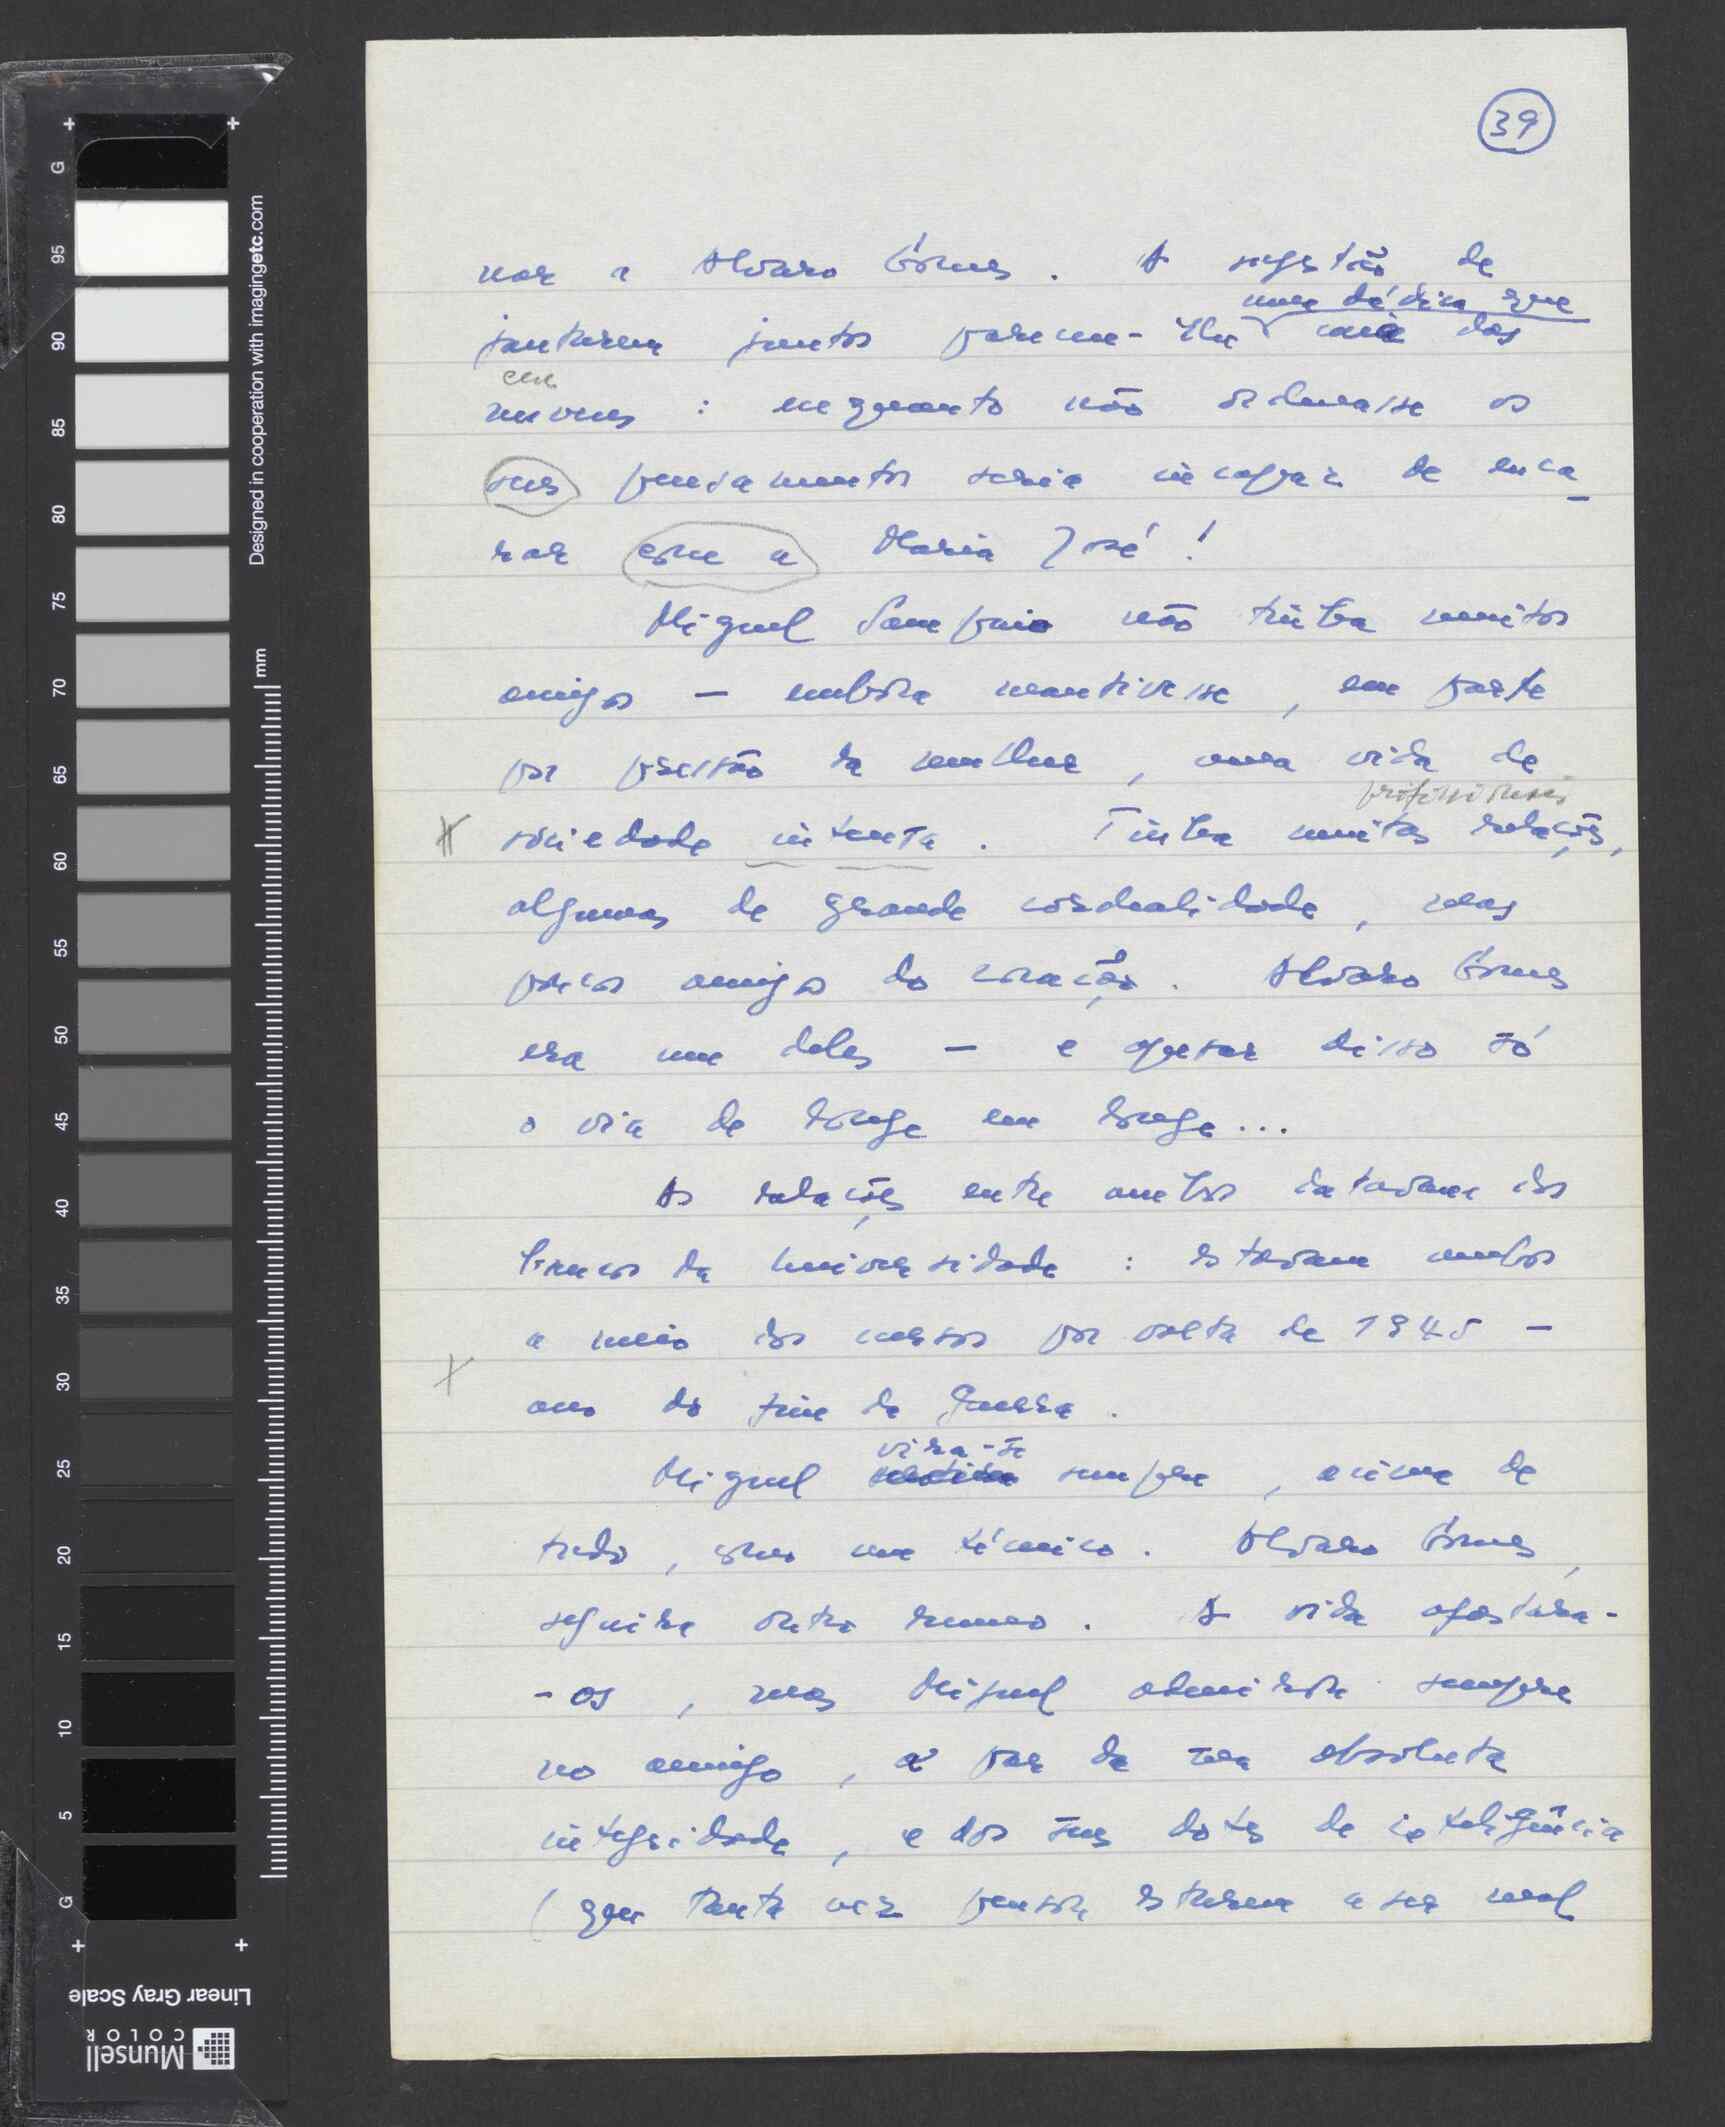 39
nar a Alvaro Gomes. A sugestão de
uma dádiva que
jantarem juntos pareceu-lhe caía das
em
nuvens : enquanto não ordenasse os
seus pensamentos seria incapaz de enca-
rar com a Maria José !
Miguel Sampaio não tinha muitos
amigos — embora mantivesse, em parte
por pressão da mulher, uma vida de
profissionais
sociedade intensa. Tinha muitas relações,
algumas de grande cordealidade, mas
poucos amigos do coração. Alvaro Gomes
era um deles — e apesar disso só
o via de longe em longe...
As relações entre ambos datavam dos
bancos da Universidade : estavam ambos
a meio dos cursos por volta de 1945 —
ano do fim da Guerra.
vira-se
Miguel sempre, acima de
tudo, como um técnico. Alvaro Gomes,
seguira outro rumo. A vida afastara-
-os, mas Miguel admirava sempre
no amigo, a par da sua absoluta
integridade, e dos seus dotes de inteligência
(que tanta vez pensou estarem a ser mal
5 10 15 20 25 30 35 40 45 50 55 60 65 70 75 80 85 90 95 G
G
mm
Designed in cooperation with imagingetc.com
Linear Gray Scale
Munsell
COLOR